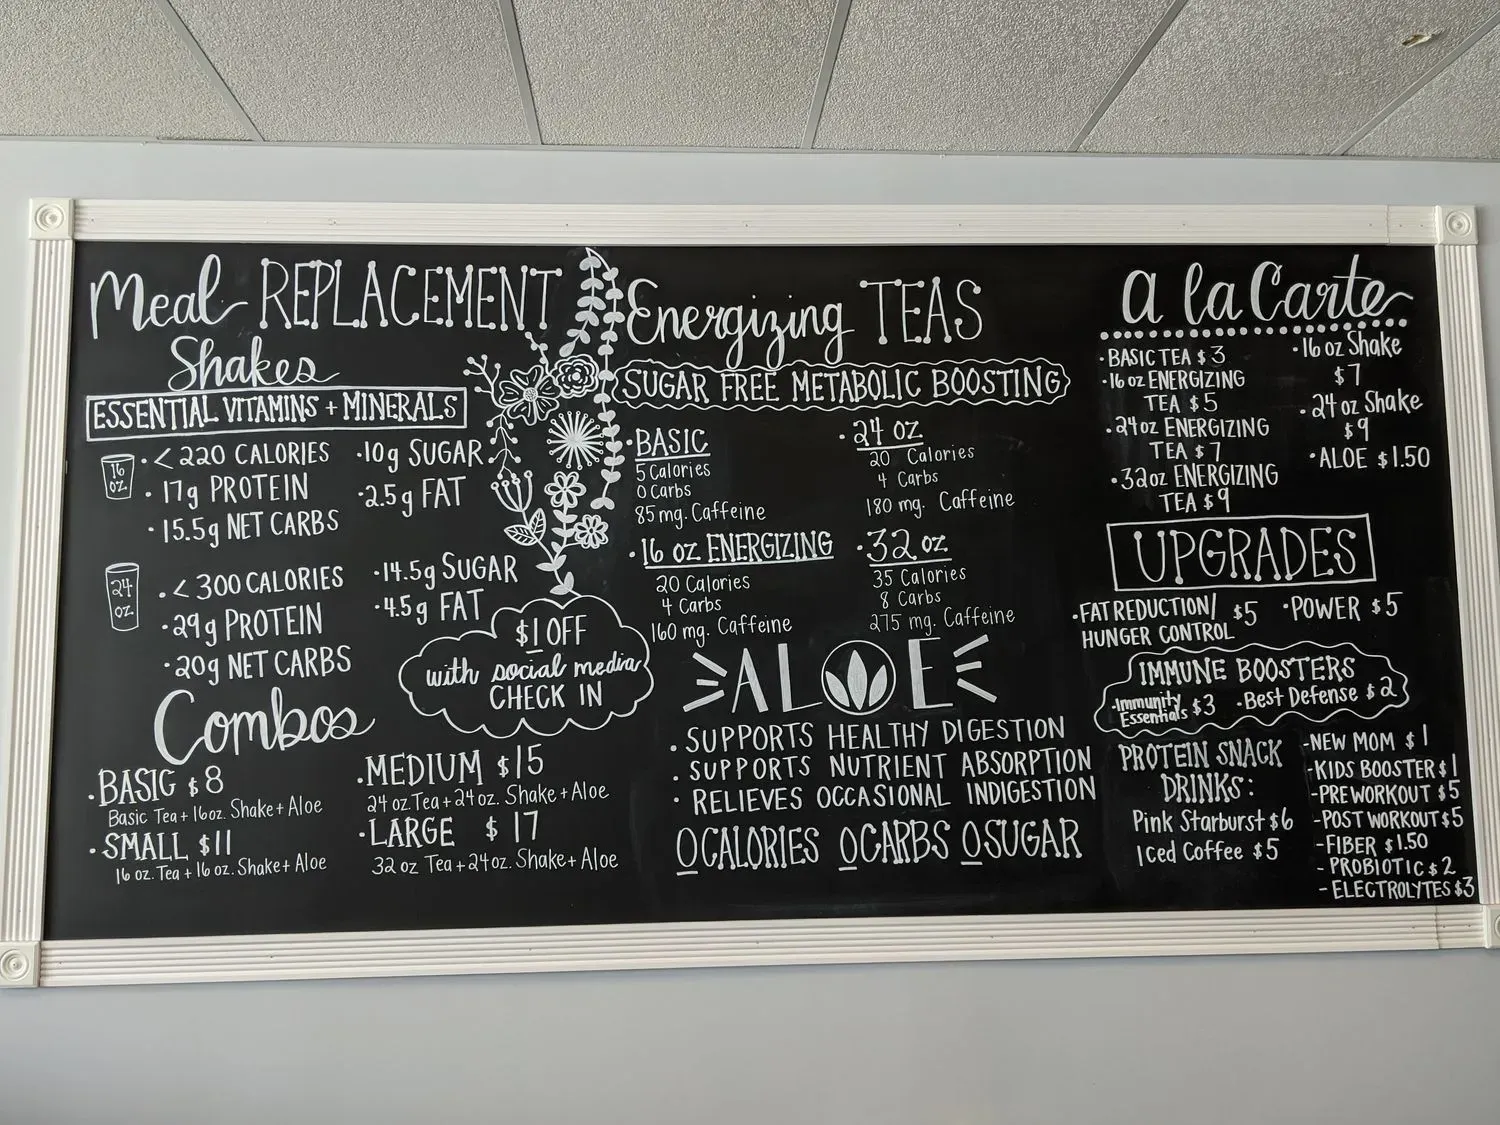 Meal REPLACEMENT
Shakes
ESSENTIAL VITAMINS + MINERALS
16
OZ.
• < 220 CALORIES
• 17g PROTEIN
• 15.5g NET CARBS
• 10g SUGAR
• 2.5g FAT
24
OZ.
• < 300 CALORIES
• 29g PROTEIN
• 20g NET CARBS
• 14.5g SUGAR
• 4.5g FAT
$1 OFF
with social media
CHECK IN
Combos
• BASIC $8
Basic Tea + 16oz. Shake + Aloe
• SMALL $11
16 oz. Tea + 16 oz. Shake + Aloe
• MEDIUM $15
24 oz. Tea + 24 oz. Shake + Aloe
• LARGE $17
32 oz Tea + 24 oz. Shake + Aloe
Energizing TEAS
SUGAR FREE METABOLIC BOOSTING
• BASIC
5 Calories
0 Carbs
85 mg. Caffeine
• 16 oz ENERGIZING
20 Calories
4 Carbs
160 mg. Caffeine
• 24 OZ
20 Calories
4 Carbs
180 mg. Caffeine
• 32 oz
35 Calories
8 Carbs
275 mg. Caffeine
ALOE
• SUPPORTS HEALTHY DIGESTION
• SUPPORTS NUTRIENT ABSORPTION
• RELIEVES OCCASIONAL INDIGESTION
0 CALORIES 0 CARBS 0 SUGAR
A la Carte
• BASIC TEA $3
• 16 oz ENERGIZING
TEA $5
• 24oz ENERGIZING
TEA $7
• 32oz ENERGIZING
TEA $9
• 16 oz Shake
$7
• 24 oz Shake
$9
• ALOE $1.50
UPGRADES
• FAT REDUCTION/
HUNGER CONTROL $5
• POWER $5
IMMUNE BOOSTERS
• Immunity
Essentials $3
• Best Defense $2
PROTEIN SNACK
DRINKS:
Pink Starburst $6
Iced Coffee $5
- NEW MOM $1
- KIDS BOOSTER $1
- PREWORKOUT $5
- POST WORKOUT $5
- FIBER $1.50
- PROBIOTIC $2
- ELECTROLYTES $3